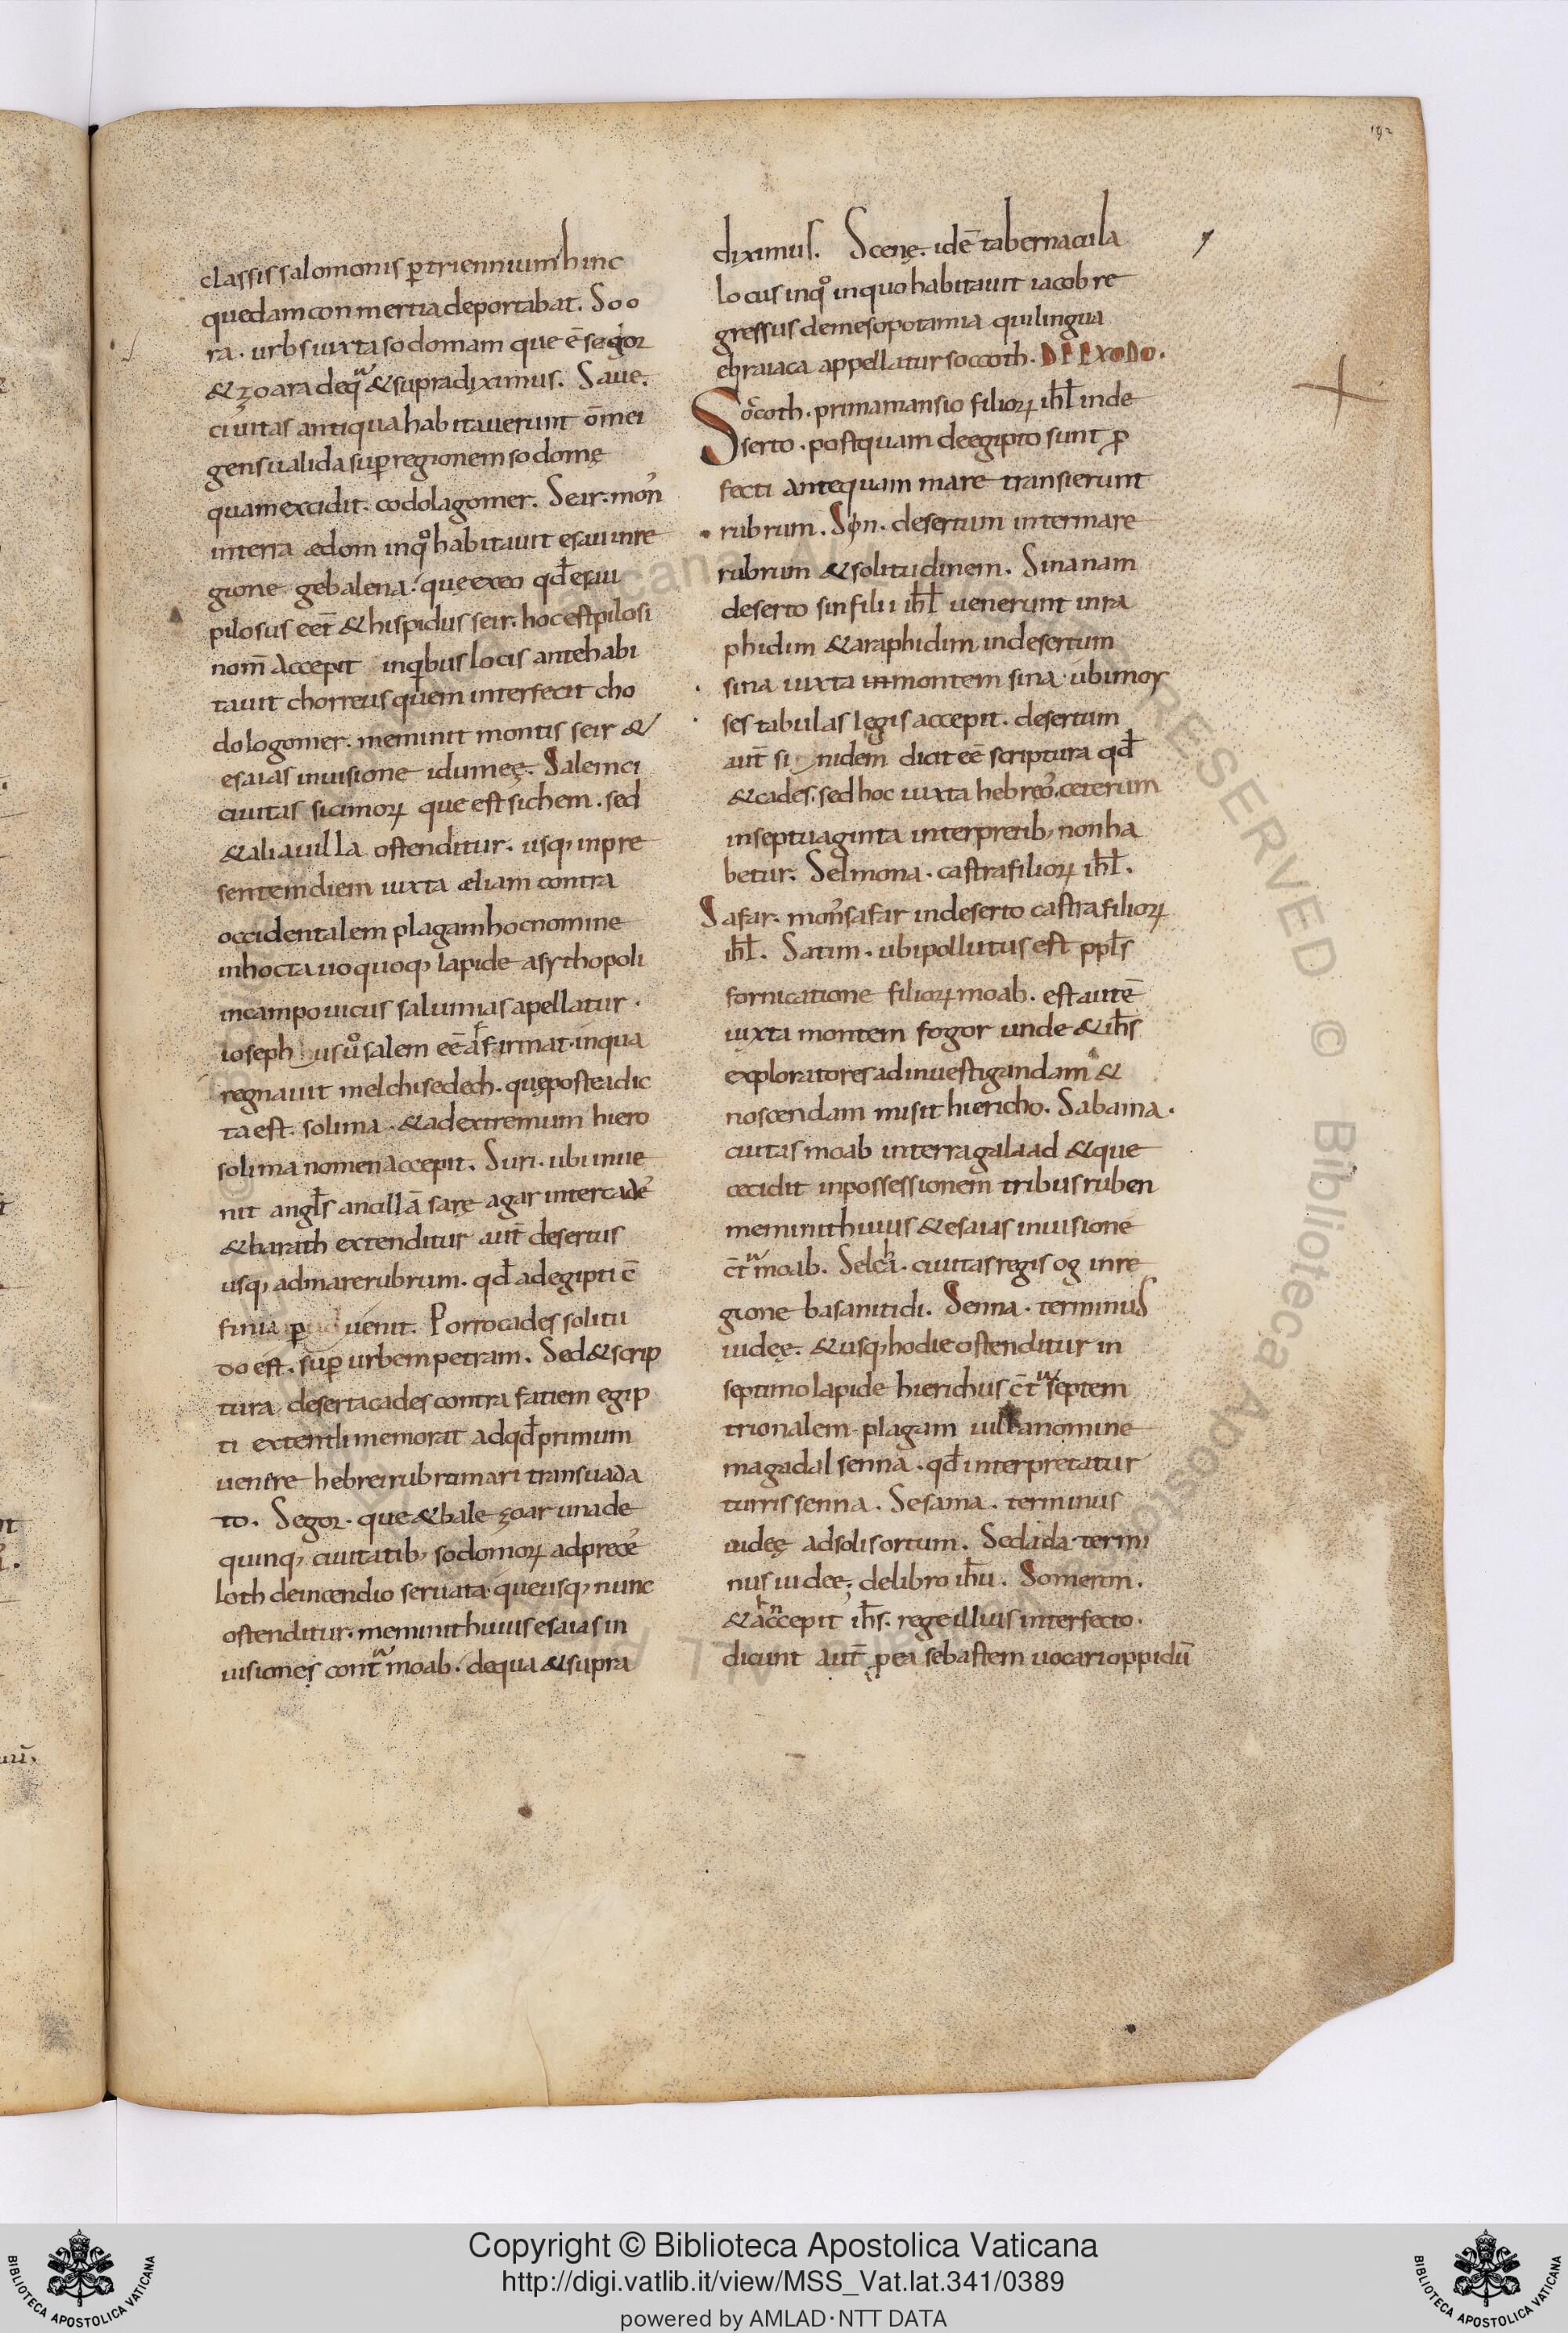 192
classis salomonis ꝑ triennium hinc
quedam conmertia deportabat. Soo
ra. urbs iuxta sodomam que ē segor
& zoara de qua & supra diximus. Saue.
ciuitas antiqua habitauerunt ōmei
gens ualida suꝑ regionem sodomę
quam excidit codolagomer. Seir. mons
in terra ædom in qͦ habitauit esau in re
gione gebalena. quę ex eo qđ esau
pilosus eēt & hispidus seir. hoc est pilosi
nom̄ accepit in qibus locis ante habi
tauit chorreus quem interfecit cho
dologomer. meminit montis seir &
esaias in uisione idumeę. Salem ci
ciuitas sicimoꝝ que est sichem. sed
& alia uilla ostenditur. usq; in pre
sentem diem iuxta æliam contra
occidentalem plagam hoc nomine
in hoctauo quoq; lapide a sythopoli
in campo uicus salumias apellatur.
ioseph uͦ salem eē afirmat. in qua
regnauit melchisedech. quę postea dic
ta est. solima. & ad extremum hiero
solima nomen accepit. Suri. ubi inue
nit angl̄s ancillā sarę agar inter cade
& barath extenditur aut̄ desertus
usq; ad mare rubrum. qđ ad egipti c̄
finia ꝑuenit. Porro cades solitu
do est. suꝑ urbem petram. Sed & scrip
tura deserta cades contra fatiem egip
ti extenti memorat ad qđ primum
uenire hebrei rubri mari transuada
to. Segor. que & bale zoar una de
quinq; ciuitatib; sodomoꝝ ad prece
loth de incendio seruata que usq; nunc
ostenditur. meminit huius esaias in
uisiones contra moab. de qua & supra
diximus. Scenę. idē tabernacula
locus in qͦ in quo habitauit iacob re
gressus de mesopotamia qui lingua
ebraiaca appellatur soccoth. DE EXODO.
Socoth. prima mansio filioꝝ ihl̄ in de
serto. postquam de egipto sunt ꝓ
fecti antequam mare transierunt
rubrum. Syn. desertum inter mare
rubrum & solitudinem. Sina nam
deserto sin filii ihl̄ uenerunt in ra
phidim & a raphidim in desertum
sina iuxta in montem sina ubi moy
ses tabulas legis accepit. desertum
aut̄ si nidem dicit eē scriptura qđ
& cades. sed hoc iuxta hebreos. ceterum
in septuaginta interpretib; non ha
betur. Selmona. castra filioꝝ ihl̄.
Safar. mons safar in deserto castra filioꝝ
ihl̄. Satim. ubi pollutus est ppl̄s
fornicatione filioꝝ moab. est autē
iuxta montem fogor unde & ih̄s
exploratores ad inuestigandam &
noscendam misit hiericho. Sabama.
ciuitas moab in terra galaad & que
cecidit in possessionem tribus ruben
meminit huius & esaias in uisione
c̄t̄ moab. Selcha. ciuitas regis og in re
gione basanitidi. Senna. terminus
iudeę. & usq; hodie ostenditur in
septimo lapide hierichus c̄t̄ septem
trionalem plagam uilla nomine
magadal senna. qđ interpretatur
turris senna. Sesama. terminus
iudeę ad solis ortum. Sedada termi
nus iudeę. de libro ih̄u. Someron.
& accepit ih̄s. rege illuis interfecto.
dicunt aut̄ ꝑ ea sebastem uocari oppidū
Copyright © Biblioteca Apostolica Vaticana
http://digi.vatlib.it/view/MSS_Vat.lat.341/0389
powered by AMLAD·NTT DATA
BIBLIOTECA APOSTOLICA VATICANA
BIBLIOTECA APOSTOLICA VATICANA